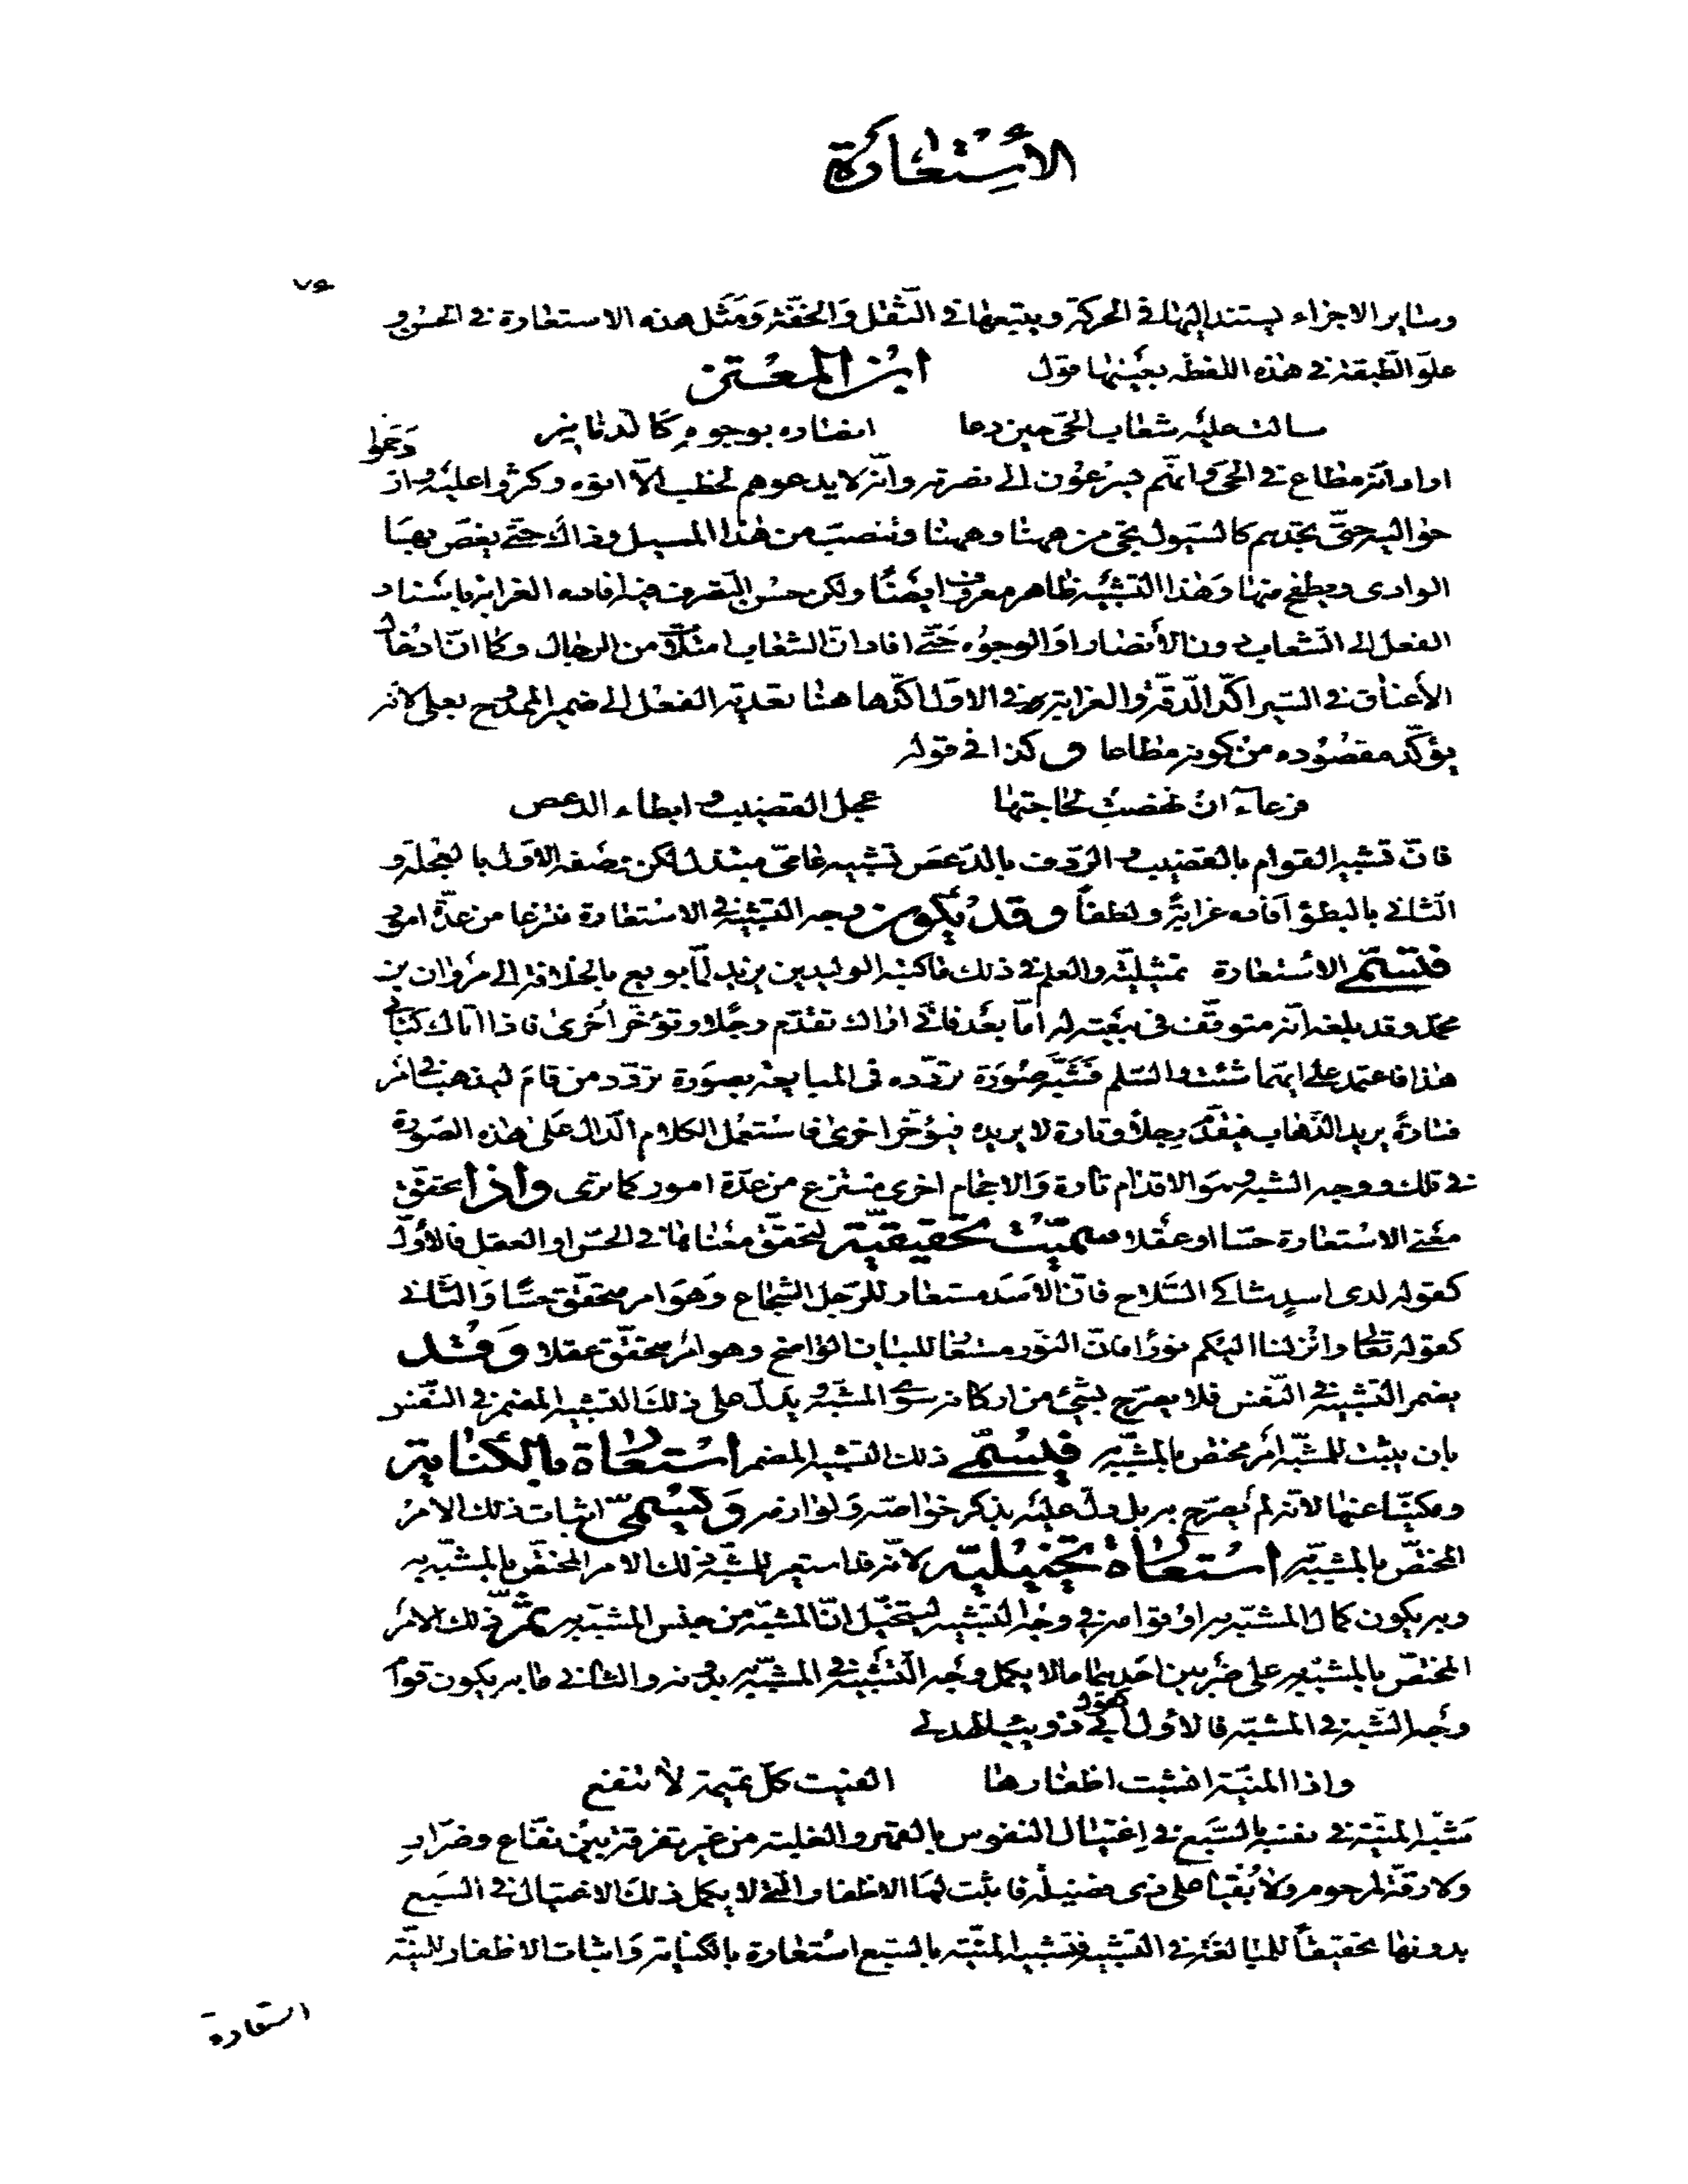 الأستعارة
٧٥
وسایر الاجزاء یستند الیها فی الحرکة ویتبعها فی الثّقل وَالخفّة وَمَثَل هذه الاستعارة فی الحسن و
علوّ الطّبقة فی هذه اللفظه بعینها قول ابن المعتز
سالت علیه شعاب الحیّ حین دعا انصاره بوجوهٍ کالدّنانیر
اراد انّه مطاع فی الحیّ وانّهم یسرعون الی نصرته وانّه لا یدعوهم لخطب الّا اتوه وکثروا علیه واز
دحموا
حوالیه حتّی تجدهم کالسّیول تجیٔ من ههنا وههنا وتنصبّ من هذا المسیل وذاک حتّی یغصّ بهبا
الوادی ویطفح منها وَهذا التشبیه ظاهر معروف ایضًا ولکن حسن التّصرف فیه افاده الغرابة باسناد
الفعل الی الشّعاب دون الأنصار او الوجوه حَتّی افاد انّ الشعاب امتلأت من الرجال وکما انّ ادخال
الأعناق فی السّیر اکّد الدّقّة والغرابة فی الاوّل اکّدها هنا تعدیة الفعل الی ضمیر الممدوح بعلی لانّه
یؤکّد مقصُوده من کونه مطاعا وکذا فی قوله
فزعاء ان نهضت لحاجتها عجل القضیب وابطاء الدعص
فانّ تشبیه القوام بالقضیب والرّدف بالدّعص تشبیه عامّی مبتذل لکن وصفه الاوّل بالعجلة و
الثّانی بالبطؤ آفاده غرابةً ولطفاً وقد یکون وجه التشبیه فی الاستعارة منتزعا من عدّة امور
فتسمّی الاستعارة تمثیلیّة والعلم فی ذلک ما کتبه الولید بن یزید لمّا بویع بالخلافة الی مروان بن
محمّد وقد بلغه انّه متوقّف فی بیعته له امّا بعد فانّی اراک تقدّم رجلًا وتؤخّر أخری فاذا اتاک کتابی
هذا فاعتمد علی ایّهما شئت والسّلم فَشَبَّه صُورَة تردّده فی المبایعة بصورة تردّد من قام لیذهب فی امر
فتارةً یرید الذّهاب فیقدّم رجلًا وتارة لا یریده فیؤخّر اخری فاستعمل الکلام الّدال علی هذه الصّورة
فی تلک ووجه الشبه وهو الاقدام تارة وَالاحجام اخری منتزع من عدّة امور کما تری واذا تحقّق
معنی الاستعارة حسّا او عقلا سمّیت تحقیقیّة لتحقّق معناها فی الحسّ او العقل فالأوّل
کقوله لدی اسدٍ شاکی السّلاح فانّ الاسَد مستعار للرّجل الشّجاع وَهوَ امر متحقّق حسًّا وَالثّانی
کقوله تعالی وانزلنا الیکم نورًا فانّ النّور مستعار للبیان الواضح وهو امر متحقّق عقلا وَقد
یضمر التشبیه فی النّفس فلا یصرّح بشیٔ من ارکانه سوی المشبّه ویدلّ علی ذلک التشبیه المضمر فی النّفس
بان یثبت للمشبّه امر مختص بالمشبّه به فیسمّی ذلک التشبیه المضمر استعارة بالکنایة
ومکنیّا عنها لانّه لم یصرّح به بل دلّ علیه بذکر خواصّه وَلوازمه وَیُسمّی اثبات ذلک الامر
المختصّ بالمشبّه به استعارة تخییلیّة لانّه قد استعیر للمشبّه ذلک الامر المختصّ بالمشبّه به
وبه یکون کمال المشبّه به او قوامه فی وجه التشبیه لیتخیّل انّ المشبّه من جنس المشبّه به ثمّ ذلک الامر
المختصّ بالمشبّه به علی ضربین احدیهما مالا یکمل وجه التشبیه فی المشبّه به بدونه والثانی ما به یکون قوام
وجه الشّبه فی المشبّه فالأول کقول ابی ذویب الهذلی
واذا المنیّة انشبت اظفارها الفیت کلّ تمیمة لا تنفع
شبّه المنیّة فی نفسه بالسّبع فی اغتیال النفوس بالقهر والغلبة من غیر تفرقة بین نفّاع وضرّارِ
ولا رقّة لمرحوم ولا بُقیا علی ذی فضیلة فاثبت لها الاظفار الّتی لا یکمل ذلک الاغتیال فی السّبع
بدونها تحقیقاً للمبالغة فی التشبیه فتشبیه المنیّة بالسّبع استعارة بالکنایة وَاثبات الاظفار للمنیّة
استعارة